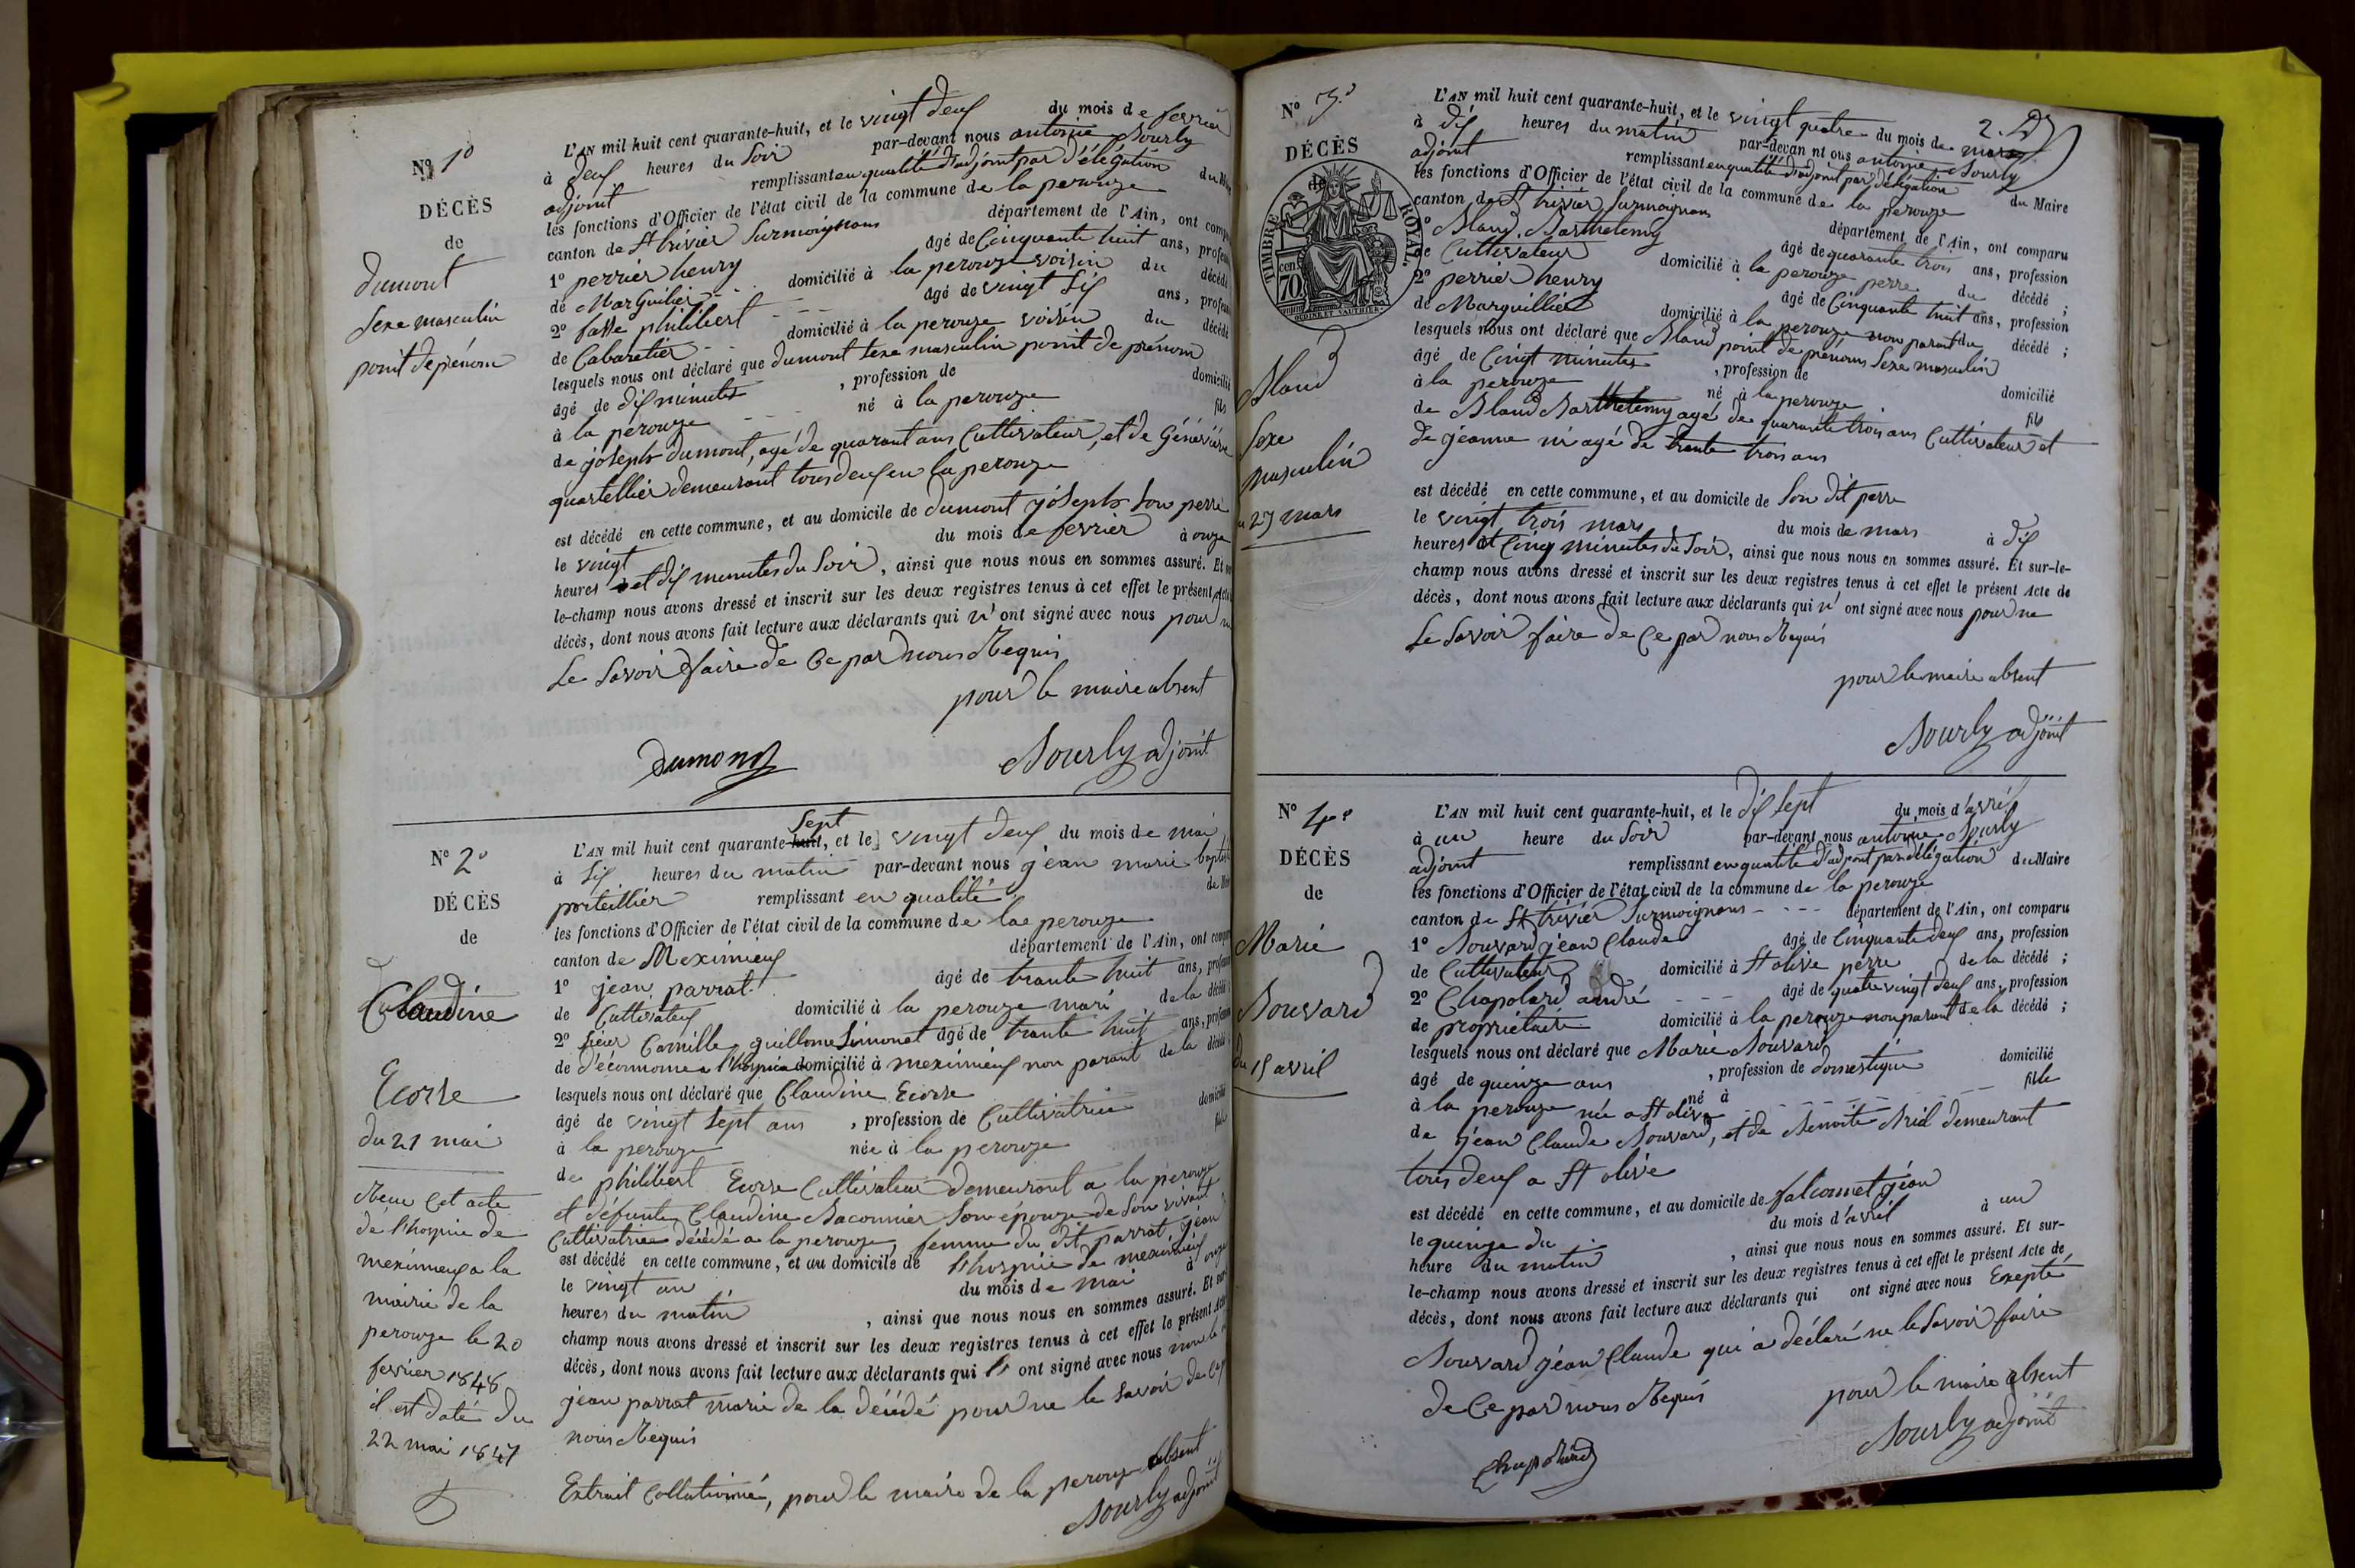 Nº 1º
DÉCÈS
de
dumont
sexe masculin
point de prénom
L'AN mil huit cent quarante-huit, et le vingt deux du mois de fevrier
à deux heures du soir par-devant nous antoine Bourly
adjoint remplissant en qualité d'adjoint par délégation du
les fonctions d'Officier de l'état civil de la commune de la perouze
canton de St trivier Surmoignans département de l'Ain, ont
1º perrier henry âgé de Cinquante huit ans,
de Marguilier domicilié à la perouze voisin du décédé
2º fasse philibert âgé de vingt six ans,
de Cabaretier domicilié à la perouze voisin du décédé
lesquels nous ont déclaré que dumont sexe masculin point de prénom
âgé de dix minutes , profession de domicilié
à la perouze né à la perouze fils
de joseph dumont, agé de quarant ans Cultivateur, et de Généviève
quartellier demeurant tous deux en la perouze
est décédé en cette commune, et au domicile de dumont joseph son perre
le vingt du mois de fevrier à onze
heures et dix minutes du soir, ainsi que nous nous en sommes assuré. Et
le-champ nous avons dressé et inscrit sur les deux registres tenus à cet effet le présent
décès, dont nous avons fait lecture aux déclarants qui n' ont signé avec nous pour
Le Savoir faire de Ce par nous Requis
pour le maire absent
Dumont Bourly adjoint
Nº 2º
DÉCÈS
de
Claudine
Ecorse
du 21 mai
Reçu Cet acte
de l'hospice de
meximieux a la
mairie de la
perouze le 20
fevrier 1848
il est daté du
22 mai 1847
sept
L'AN mil huit cent quarante-huit, et le vingt deux du mois de mai
à six heures du matin par-devant nous jean marie
porteillier remplissant en qualité de
les fonctions d'Officier de l'état civil de la commune de la perouze
canton de Meximieux département de l'Ain, ont
1º jean parrat âgé de trante huit ans,
de Cultivateur domicilié à la perouze mari de la décédé
2º sieur Camille guillome Simonet âgé de trante huit ans,
de d'économe a l'hospice domicilié à meximieux non parant de la décédé
lesquels nous ont déclaré que Claudine Ecorse
âgé de vingt sept ans , profession de Cultivatrice
à la perouze née à la perouze
de philibert Ecorse Cultivateur demeurant a la perouze
et défunte Claudine Baconnier son épouze de Son vivant
Cultivatrice décédé a la perouze, femme du dit parrat jean
est décédé en cette commune, et au domicile de l'hospice de meximieux
le vingt un du mois de mai à onze
heures du matin , ainsi que nous nous en sommes assuré. Et
champ nous avons dressé et inscrit sur les deux registres tenus à cet effet le présent
décès, dont nous avons fait lecture aux déclarants qui ont signé avec nous
jean parrat marie de la décédé pour ne le savoir de
nous Requis
Extrait Collationné, pour le maire de la perouze absent
Bourly adjoint
Nº 3º
DÉCÈS
de
TIMBRE ROYAL.
70
Bland
Sexe
masculin
27 mars
2.
L'AN mil huit cent quarante-huit, et le vingt quatre du mois de mars
à dix heures du matin par-devan nt ous antoine Bourly
adjoint remplissant en qualité d'adjoint par délégation du Maire
les fonctions d'Officier de l'état civil de la commune de la perouze
canton de St trivier Surmoignans département de l'Ain, ont comparu
1º Bland Barthelemy âgé de quarante trois ans, profession
de Cultivateur domicilié à la perouze perre du décédé ;
2º perrier henry âgé de Cinquante huit ans, profession
de Marguillier domicilié à la perouze non parant du décédé ;
lesquels nous ont déclaré que Bland point de prénoms Sexe masculin
âgé de Cingt minutes , profession de domicilié
à la perouze né à la perouze fils
de Bland Barthelemy agé de quarante trois ans Cultivateur et
de jeanne agé de trante trois ans
est décédé en cette commune, et au domicile de son dit perre
le vingt trois mars du mois de mars à dix
heures et Cinq minutes du Soir, ainsi que nous nous en sommes assuré. Et sur-le-
champ nous avons dressé et inscrit sur les deux registres tenus à cet effet le présent Acte de
décès, dont nous avons fait lecture aux déclarants qui n' ont signé avec nous pour ne
Le Savoir faire de Ce par nous Requis
pour le maire absent
Bourly adjoint
Nº 4º
DÉCÈS
de
Marie
Bouvard
du 15 avril
L'AN mil huit cent quarante-huit, et le dix sept du mois d'avril
à un heure du Soir par-devant nous antoine Bourly
adjoint remplissant en qualité d'adjoint par délégation du Maire
les fonctions d'Officier de l'état civil de la commune de la perouze
canton de St trivier Surmoignans département de l'Ain, ont comparu
1º Bouvard jean Claude âgé de Cinquante deux ans, profession
de Cultivateur domicilié à St olive perre de la décédé ;
2º Chapolard andré âgé de quatre vingt deux ans, profession
de propriétaire domicilié à la perouze non parant de la décédé ;
lesquels nous ont déclaré que Marie Bouvard
âgé de queinze ans , profession de domestique domicilié
à la perouze née a St olive né à fille
de jean Claude Bouvard, et de Benoite Brid demeurant
tous deux a St olive
est décédé en cette commune, et au domicile de falconnet jean
le queinze du du mois d'avril à un
heure du matin , ainsi que nous nous en sommes assuré. Et sur-
le-champ nous avons dressé et inscrit sur les deux registres tenus à cet effet le présent Acte de
décès, dont nous avons fait lecture aux déclarants qui ont signé avec nous Exepté
Bouvard jean Claude qui a déclaré ne le Savoir faire
de Ce par nous Requis pour le maire absent
Chapolard Bourly adjoint